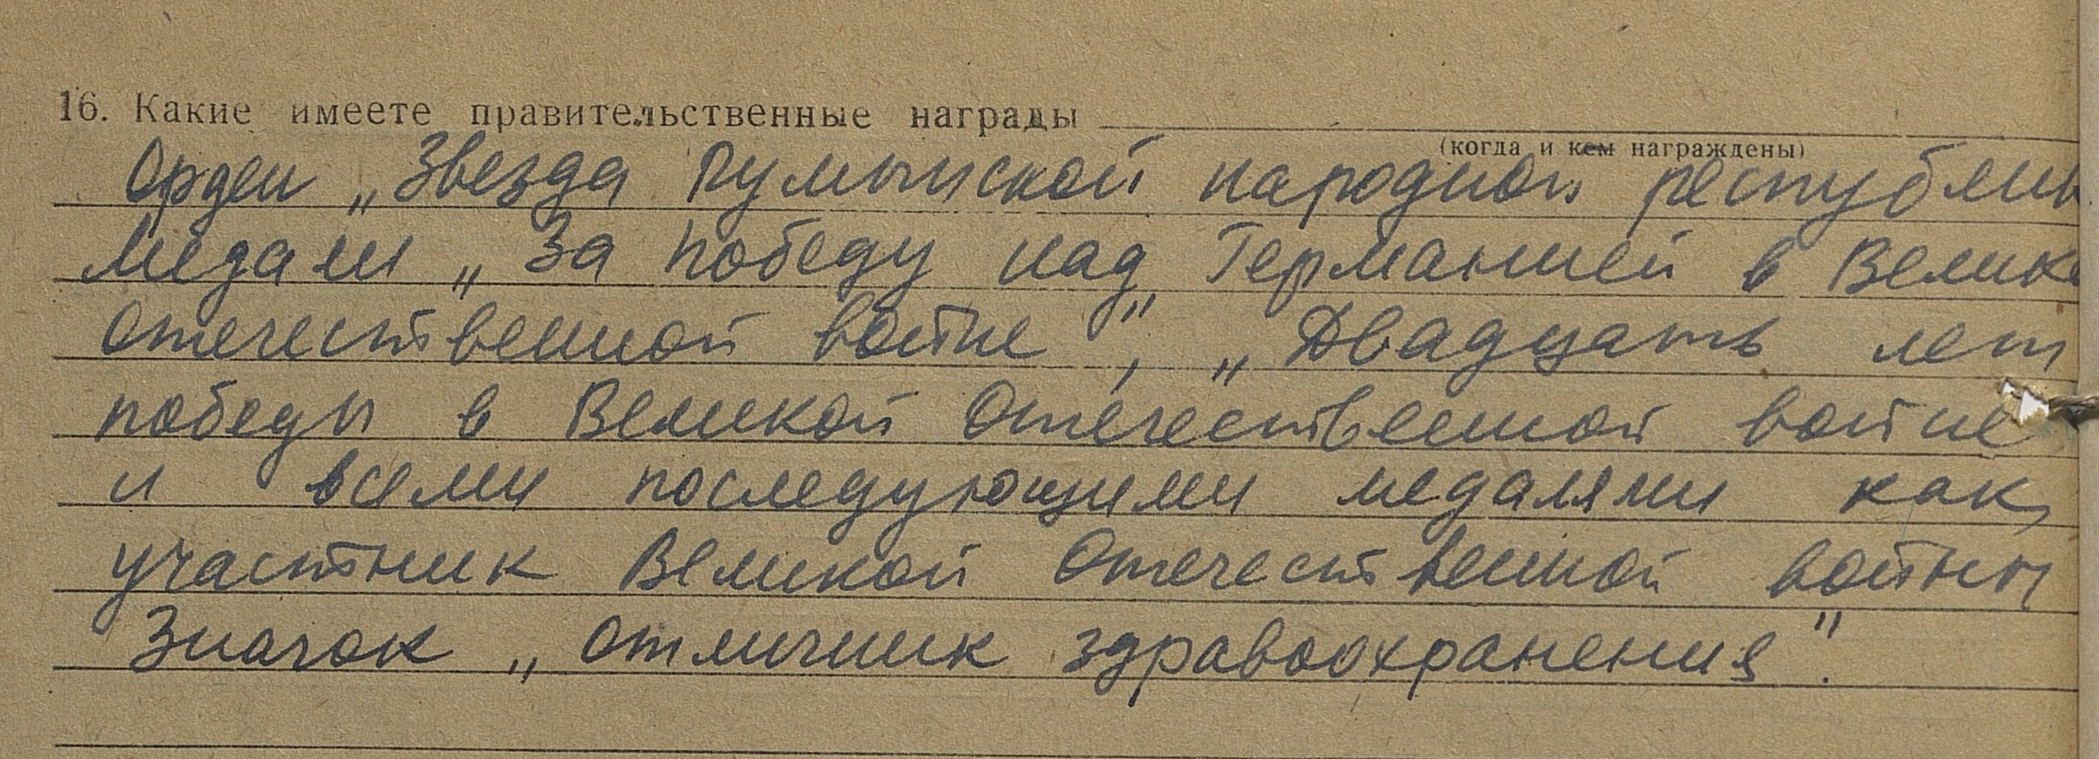 16. Какие имеете правительственные награды
(когда и кем награждены)
Орден „Звезда Румынской народной республик
медали „За победу над Германией в Велико
отечественной войне", „Двадцать лет
победы в Великой Отечественной войне
и всеми последующими медалями как
участник Великой Отечественной войны
Значок „Отличник здравоохранения".